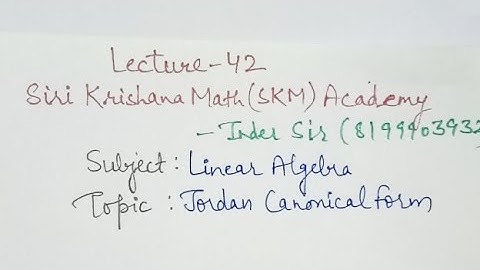 Lecture-42
Siri Krishana Math (SKM) Academy
- Inder Sir (8199903932)
Subject : Linear Algebra
Topic : Jordan Canonical form